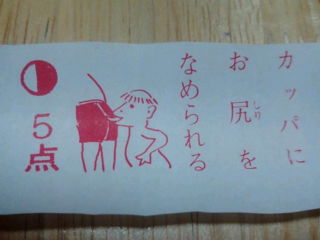 カッパに
お尻を
しり
なめられる
5点